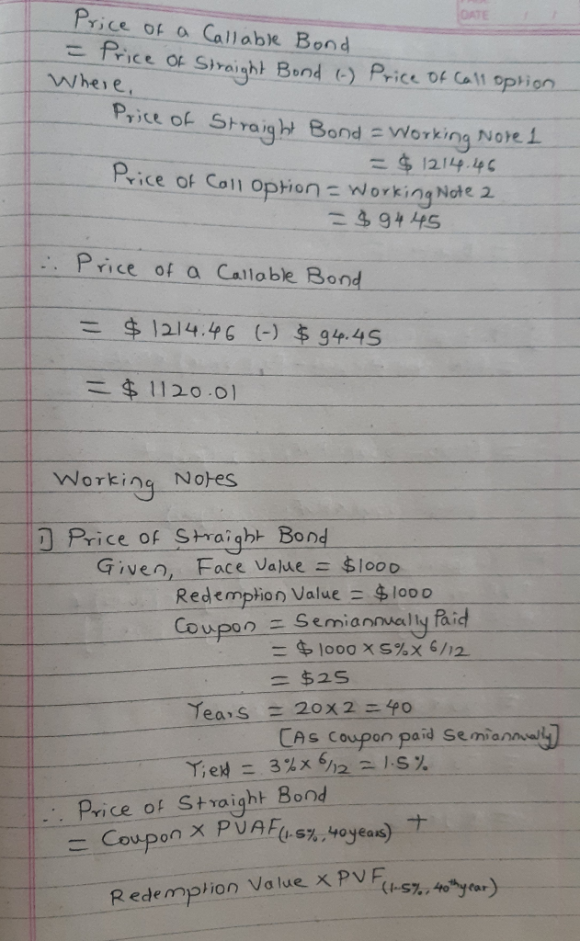 DATE / /
Price of a Callable Bond
= Price of Straight Bond (-) Price of Call option
Where,
Price of Straight Bond = Working Note 1
= $ 1214.46
Price of Call Option = Working Note 2
= $ 94.45
∴ Price of a Callable Bond
= $ 1214.46 (-) $ 94.45
= $ 1120.01
Working Notes
1] Price of Straight Bond
Given, Face Value = $1000
Redemption Value = $1000
Coupon = Semiannually Paid
= $ 1000 x 5% x 6/12
= $25
Years = 20 x 2 = 40
[As coupon paid Semiannually]
Yield = 3% x 6/12 = 1.5%
∴ Price of Straight Bond
= Coupon x PVAF(1.5%, 40 years) +
Redemption Value x PVF(1.5%, 40th year)